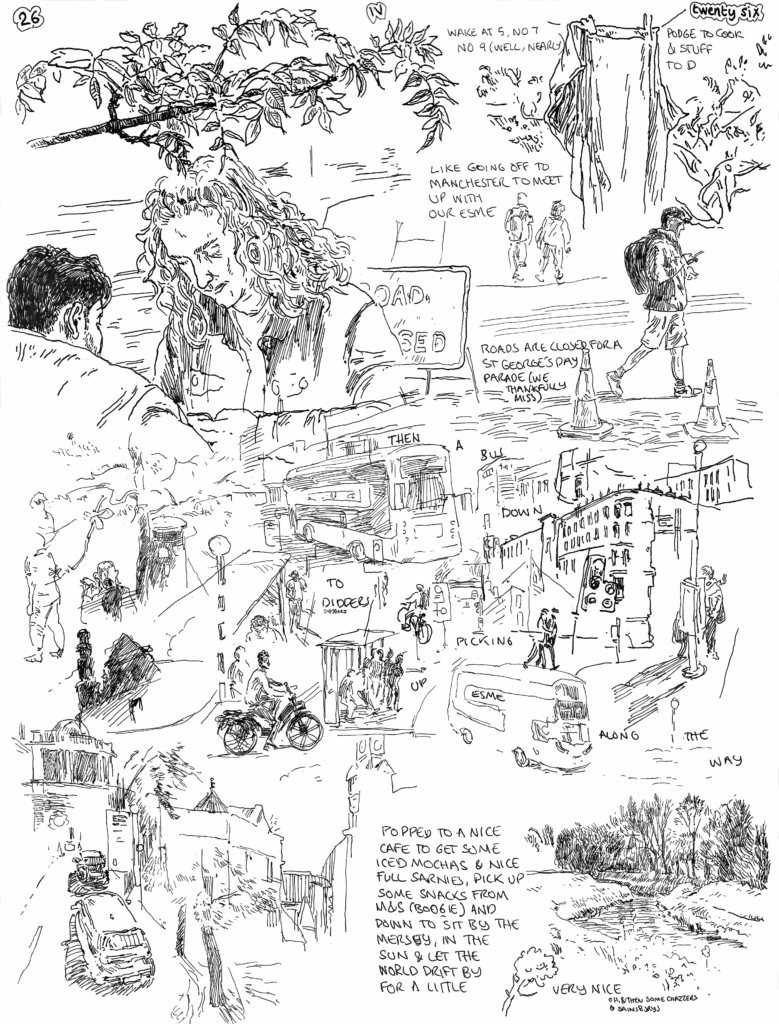 26
IV
twenty six
WAKE AT 5, NO 7
NO 9 (WELL, NEARLY)
PODGE TO COOK
& STUFF
TO D
LIKE GOING OFF TO
MANCHESTER TO MEET
UP WITH
OUR ESME
ROAD
SED
ROADS ARE CLOSED FOR A
ST GEORGE'S DAY
PARADE (WE
THANKFULLY
MISS)
THEN A BUS
DOWN
TO
DIDDERS
PICKING
UP
ESME
ALONG THE
WAY
POPPED TO A NICE
CAFE TO GET SOME
ICED MOCHAS & NICE
FULL SARNIES, PICK UP
SOME SNACKS FROM
M&S (BOOGIE) AND
DOWN TO SIT BY THE
MERSEY, IN THE
SUN & LET THE
WORLD DRIFT BY
FOR A LITTLE
VERY NICE
OH, & THEN SOME CHAZZERS
& SAINSBURYS